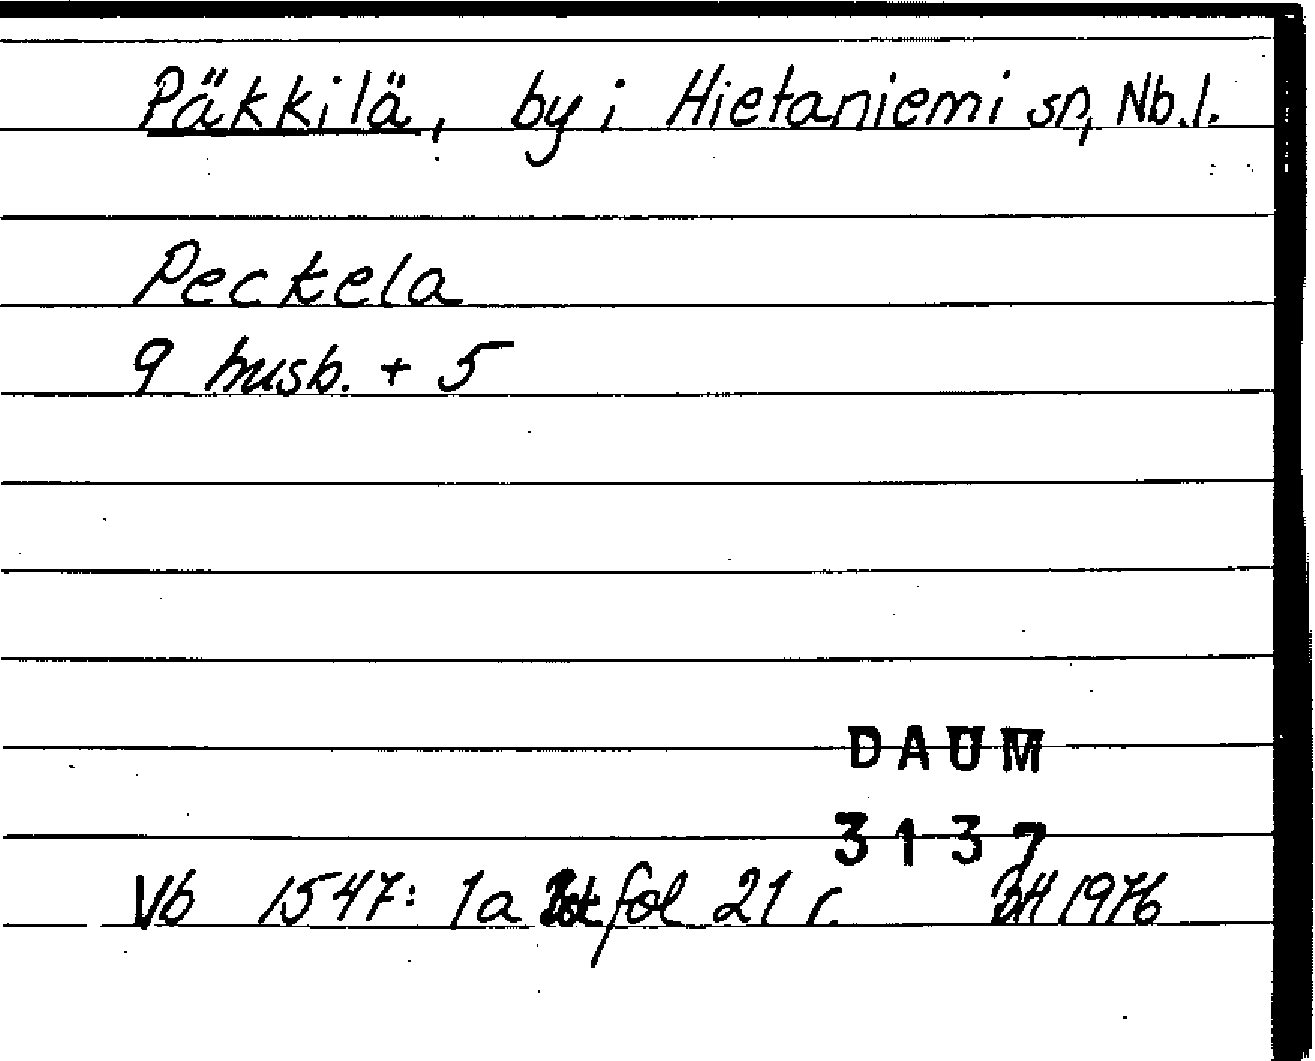 Päkkilä, by i Hietaniemi sn, Nb.l.
Peckela
9 husb. + 5
DAUM
3137
Vb 1547: 1a fol 21 r. BH 1976